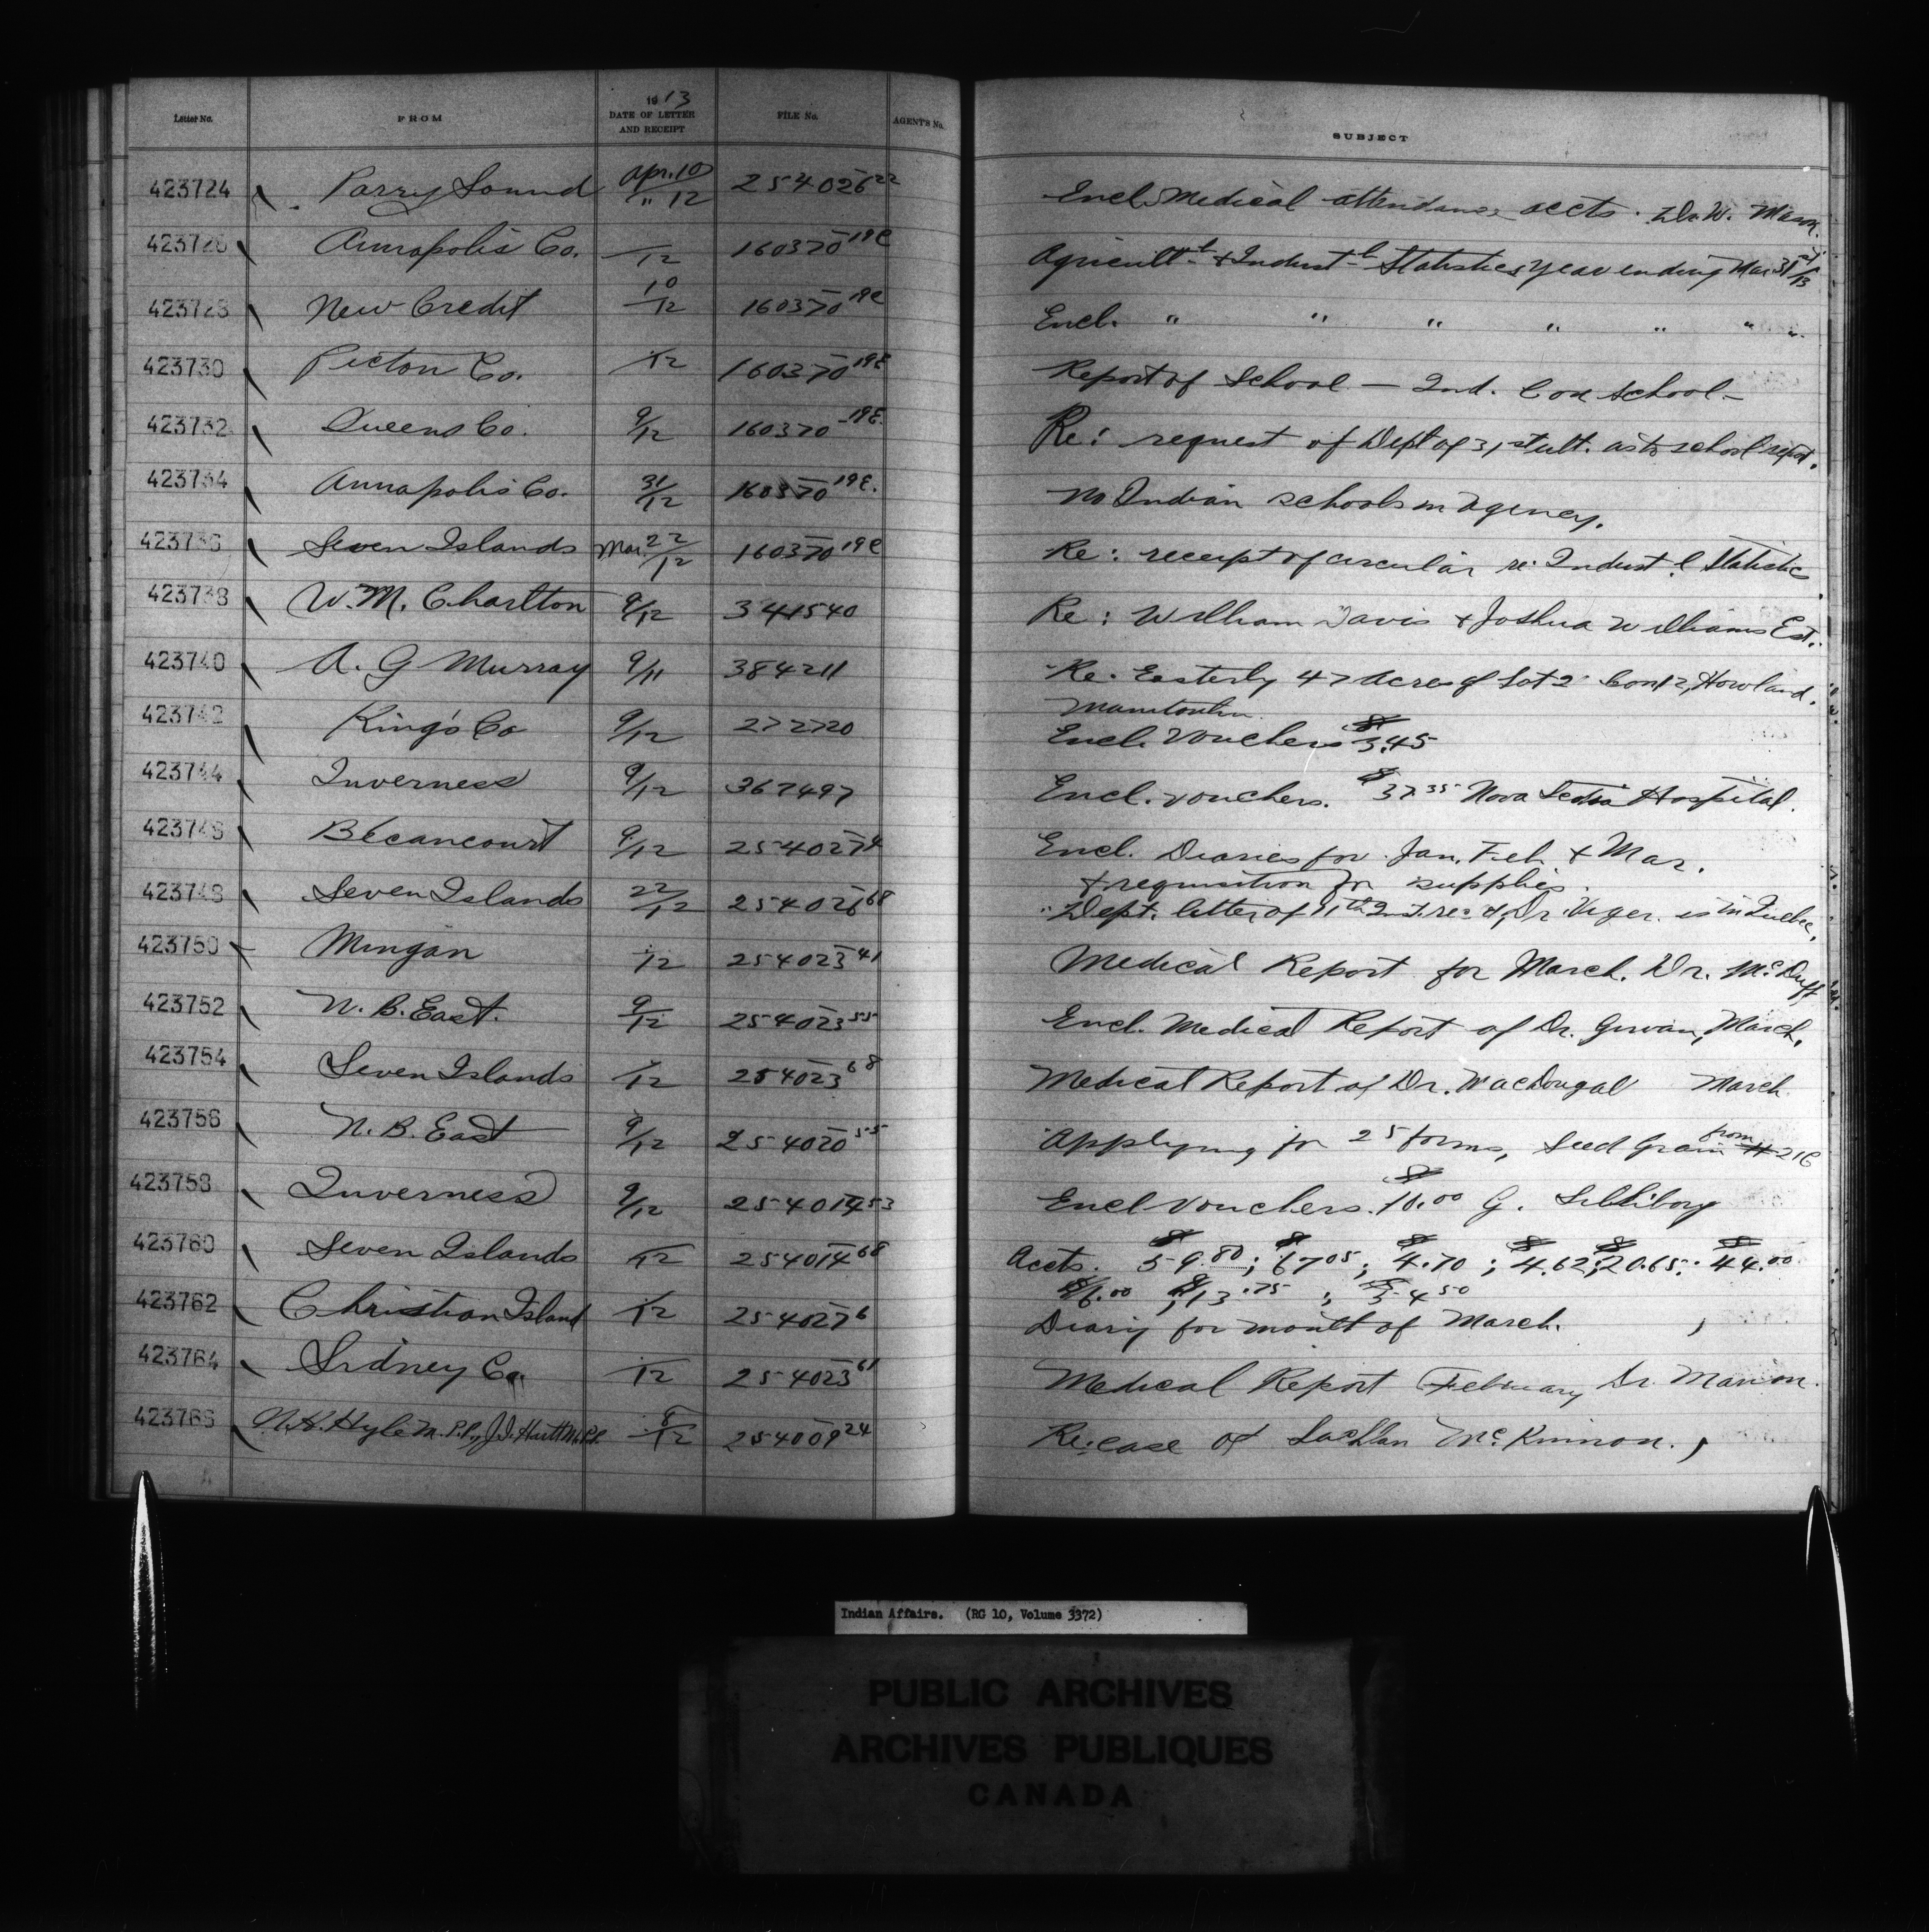 Letter No. FROM 1913 DATE OF LETTER AND RECEIPT FILE No. AGENT'S No. SUBJECT
423724 Parry Sound Apr. 10/" 12 254026 22 Encl. Medical attendance accts. Dr. W. Mason.
423726 Annapolis Co. /12 160370 19E Agricult-l & Indust-l Statistics year ending Mar 31st/13
423728 New Credit 10/12 160370 19E Encl. " " " " " " "
423730 Pictou Co. /12 160370 19E Report of School — Ind. Con School —
423732 Queens Co. 9/12 160370 19E. Re: request of Dept of 31st ult. as to school report.
423734 Annapolis Co. 31/12 160370 19E. No Indian schools in agency.
423736 Seven Islands Mar. 22/12 160370 19E Re: receipt of circular re: Indust.l Statistic
423738 W. M. Charlton 9/12 341540 Re: William Davis & Joshua Williams Est.
423740 A. G Murray 9/11 384211 Re: Easterly 47 acres of Lot 2 Con 12, Howland,
Manitoulin.
423742 King's Co 9/12 272720 Encl. Vouchers $3.45
423744 Inverness 9/12 367497 Encl. vouchers. $37.35 Nova Scotia Hospital.
423746 Bécancourt 9/12 254027 4 Encl. Diaries for Jan. Feb & Mar.
& requisition for supplies.
423748 Seven Islands 22/12 254026 68 Dept. letter of 11th Inst. rec'd, Dr. Viger is in Quebec,
423750 Mingan /12 254023 41 Medical Report for March. Dr. McDuff
423752 N. B. East. 9/12 254023 55 Encl. Medical Report of Dr. Girvan, March.
423754 Seven Islands /12 254023 68 Medical Report of Dr. MacDougal March
423756 N. B. East 9/12 254020 55 Applying for 25 forms, Seed Grain from # 216
423758 Inverness 9/12 254014 53 Encl vouchers. $10.00 G.
423760 Seven Islands /12 254014 68 Accts. $59.80; $67.05; $4.70; $4.62; $20.65; $44.00
$6.00; $13.75; $54.50
423762 Christian Island /12 254027 6 Diary for month of March.
423764 Sidney Co. /12 254023 61 Medical Report February Dr.
423766 N. H. M.P.P., J. J. M.P.P. 8/12 254009 24 Re: case of Lachlan McKinnon.
Indian Affairs. (RG 10, Volume 3372)
PUBLIC ARCHIVES
ARCHIVES PUBLIQUES
CANADA